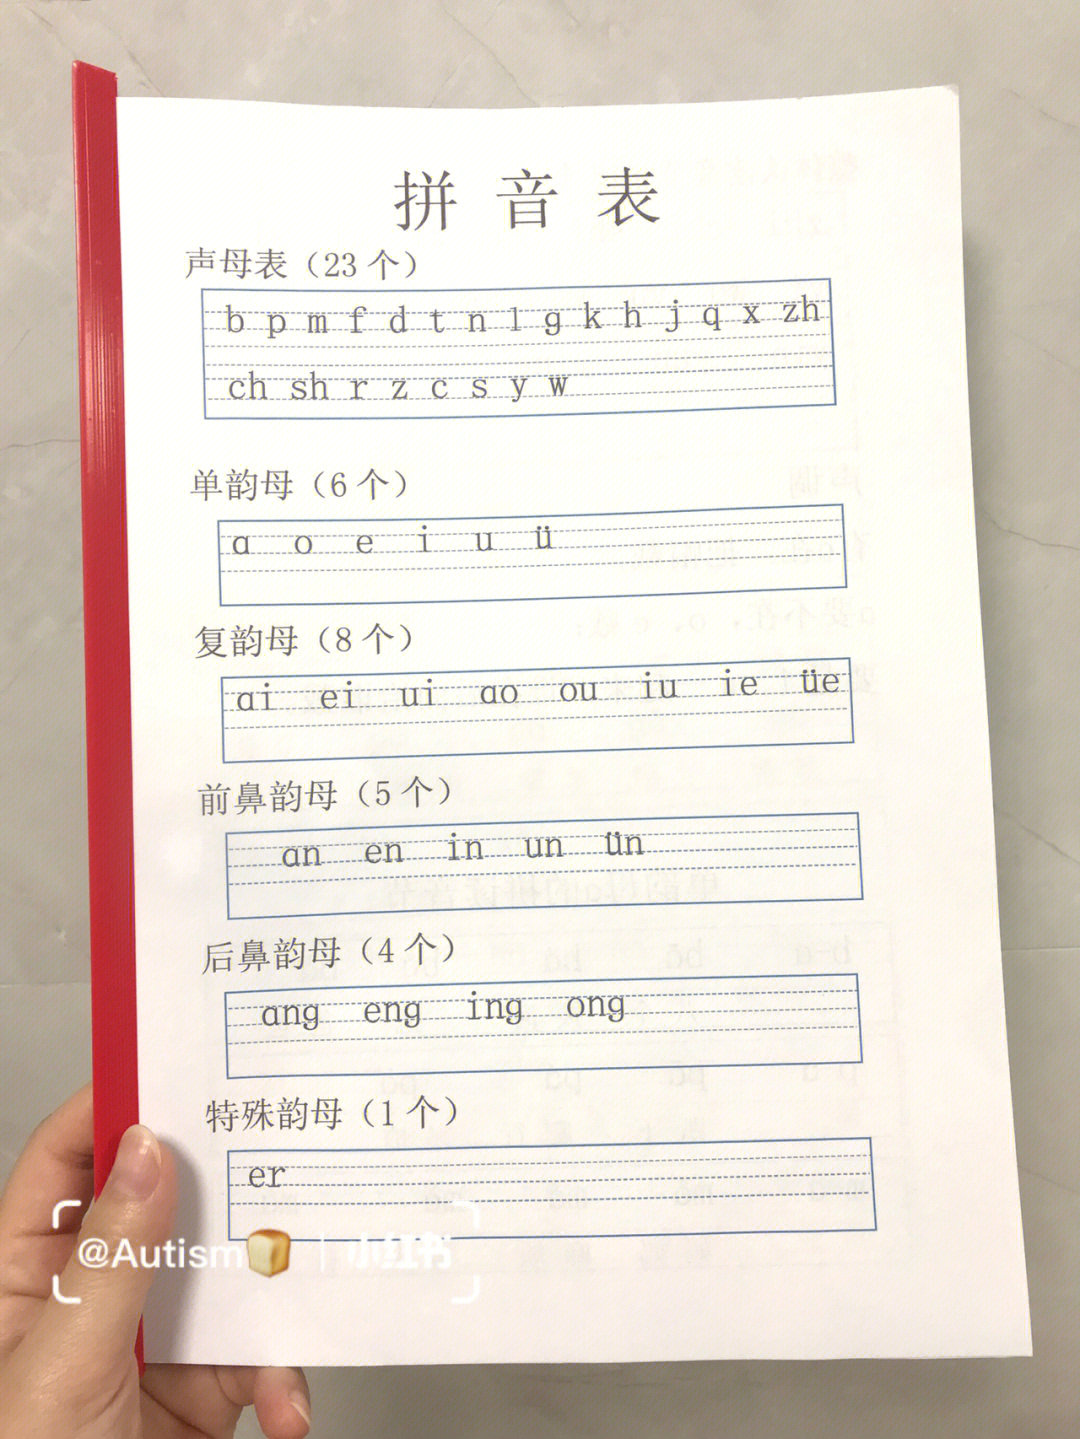 拼音表
声母表（23个）
b p m f d t n l g k h j q x zh
ch sh r z c s y w
单韵母（6个）
a o e i u ü
复韵母（8个）
ai ei ui ao ou iu ie üe
前鼻韵母（5个）
an en in un ün
后鼻韵母（4个）
ang eng ing ong
特殊韵母（1个）
er
@Autism🍞 | 小红书